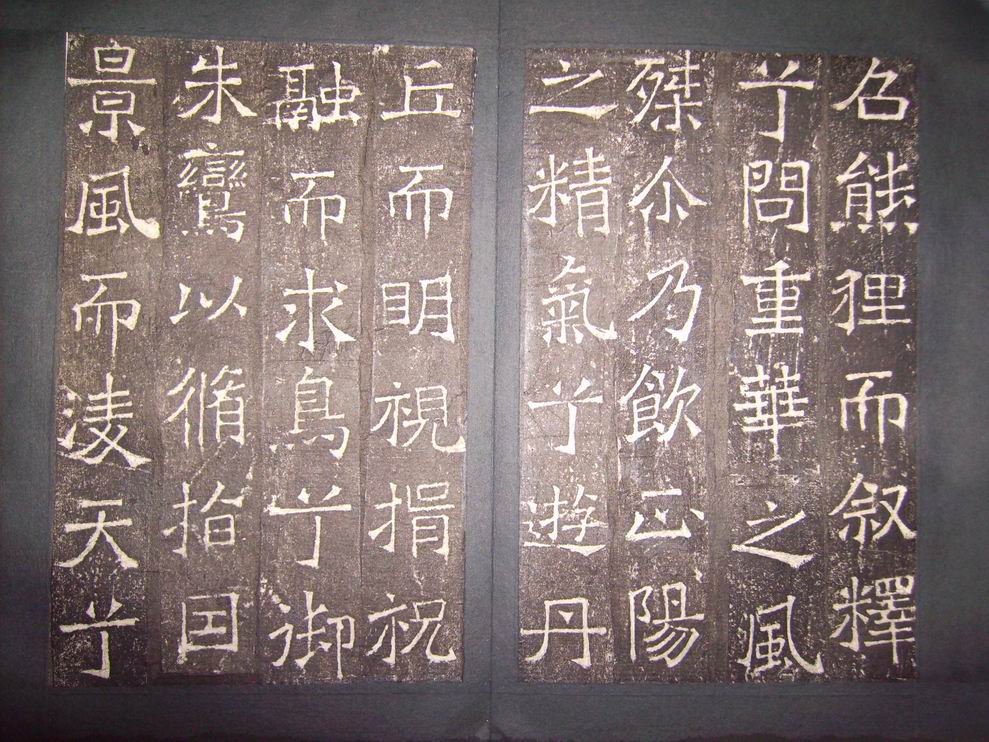 召熊狸而叙釋
兮問重華之風
尒乃飲正陽
之精氣兮遊丹
丘而眀視捐祝
融而求鳥兮御
朱鸞以循指因
景風而淩天兮